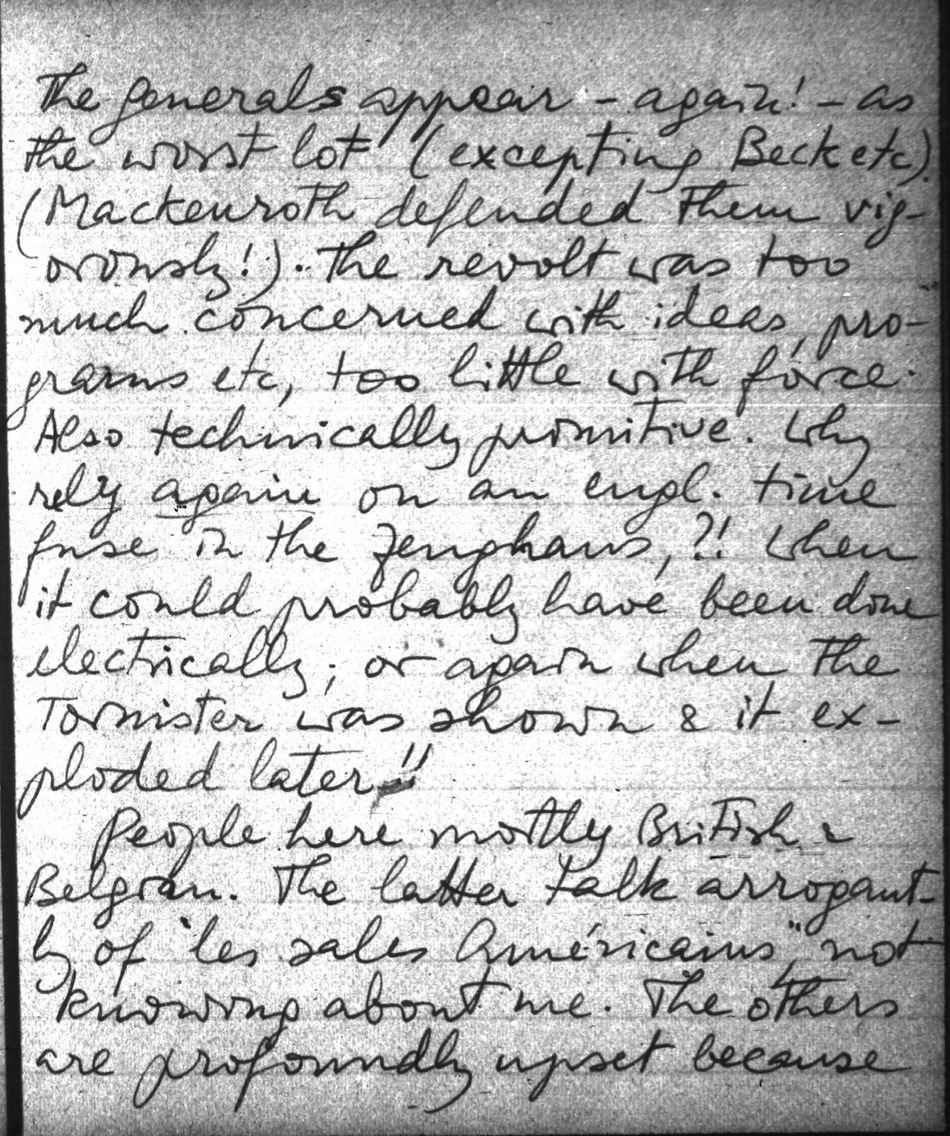 The generals appear – again! – as
the worst lot (excepting Beck etc).
(Mackenroth defended them vig-
orously!). The revolt was too
much concerned with ideas, pro-
grams etc, too little with force.
Also technically primitive. Why
rely again on an engl. time
fuse in the Zeughaus, ?! When
it could probably have been done
electrically; or again when the
Tornister was shown & it ex-
ploded later!!
People here mostly British &
Belgian. The latter talk arrogant-
ly of "les sales Américains", not
knowing about me. The others
are profoundly upset because